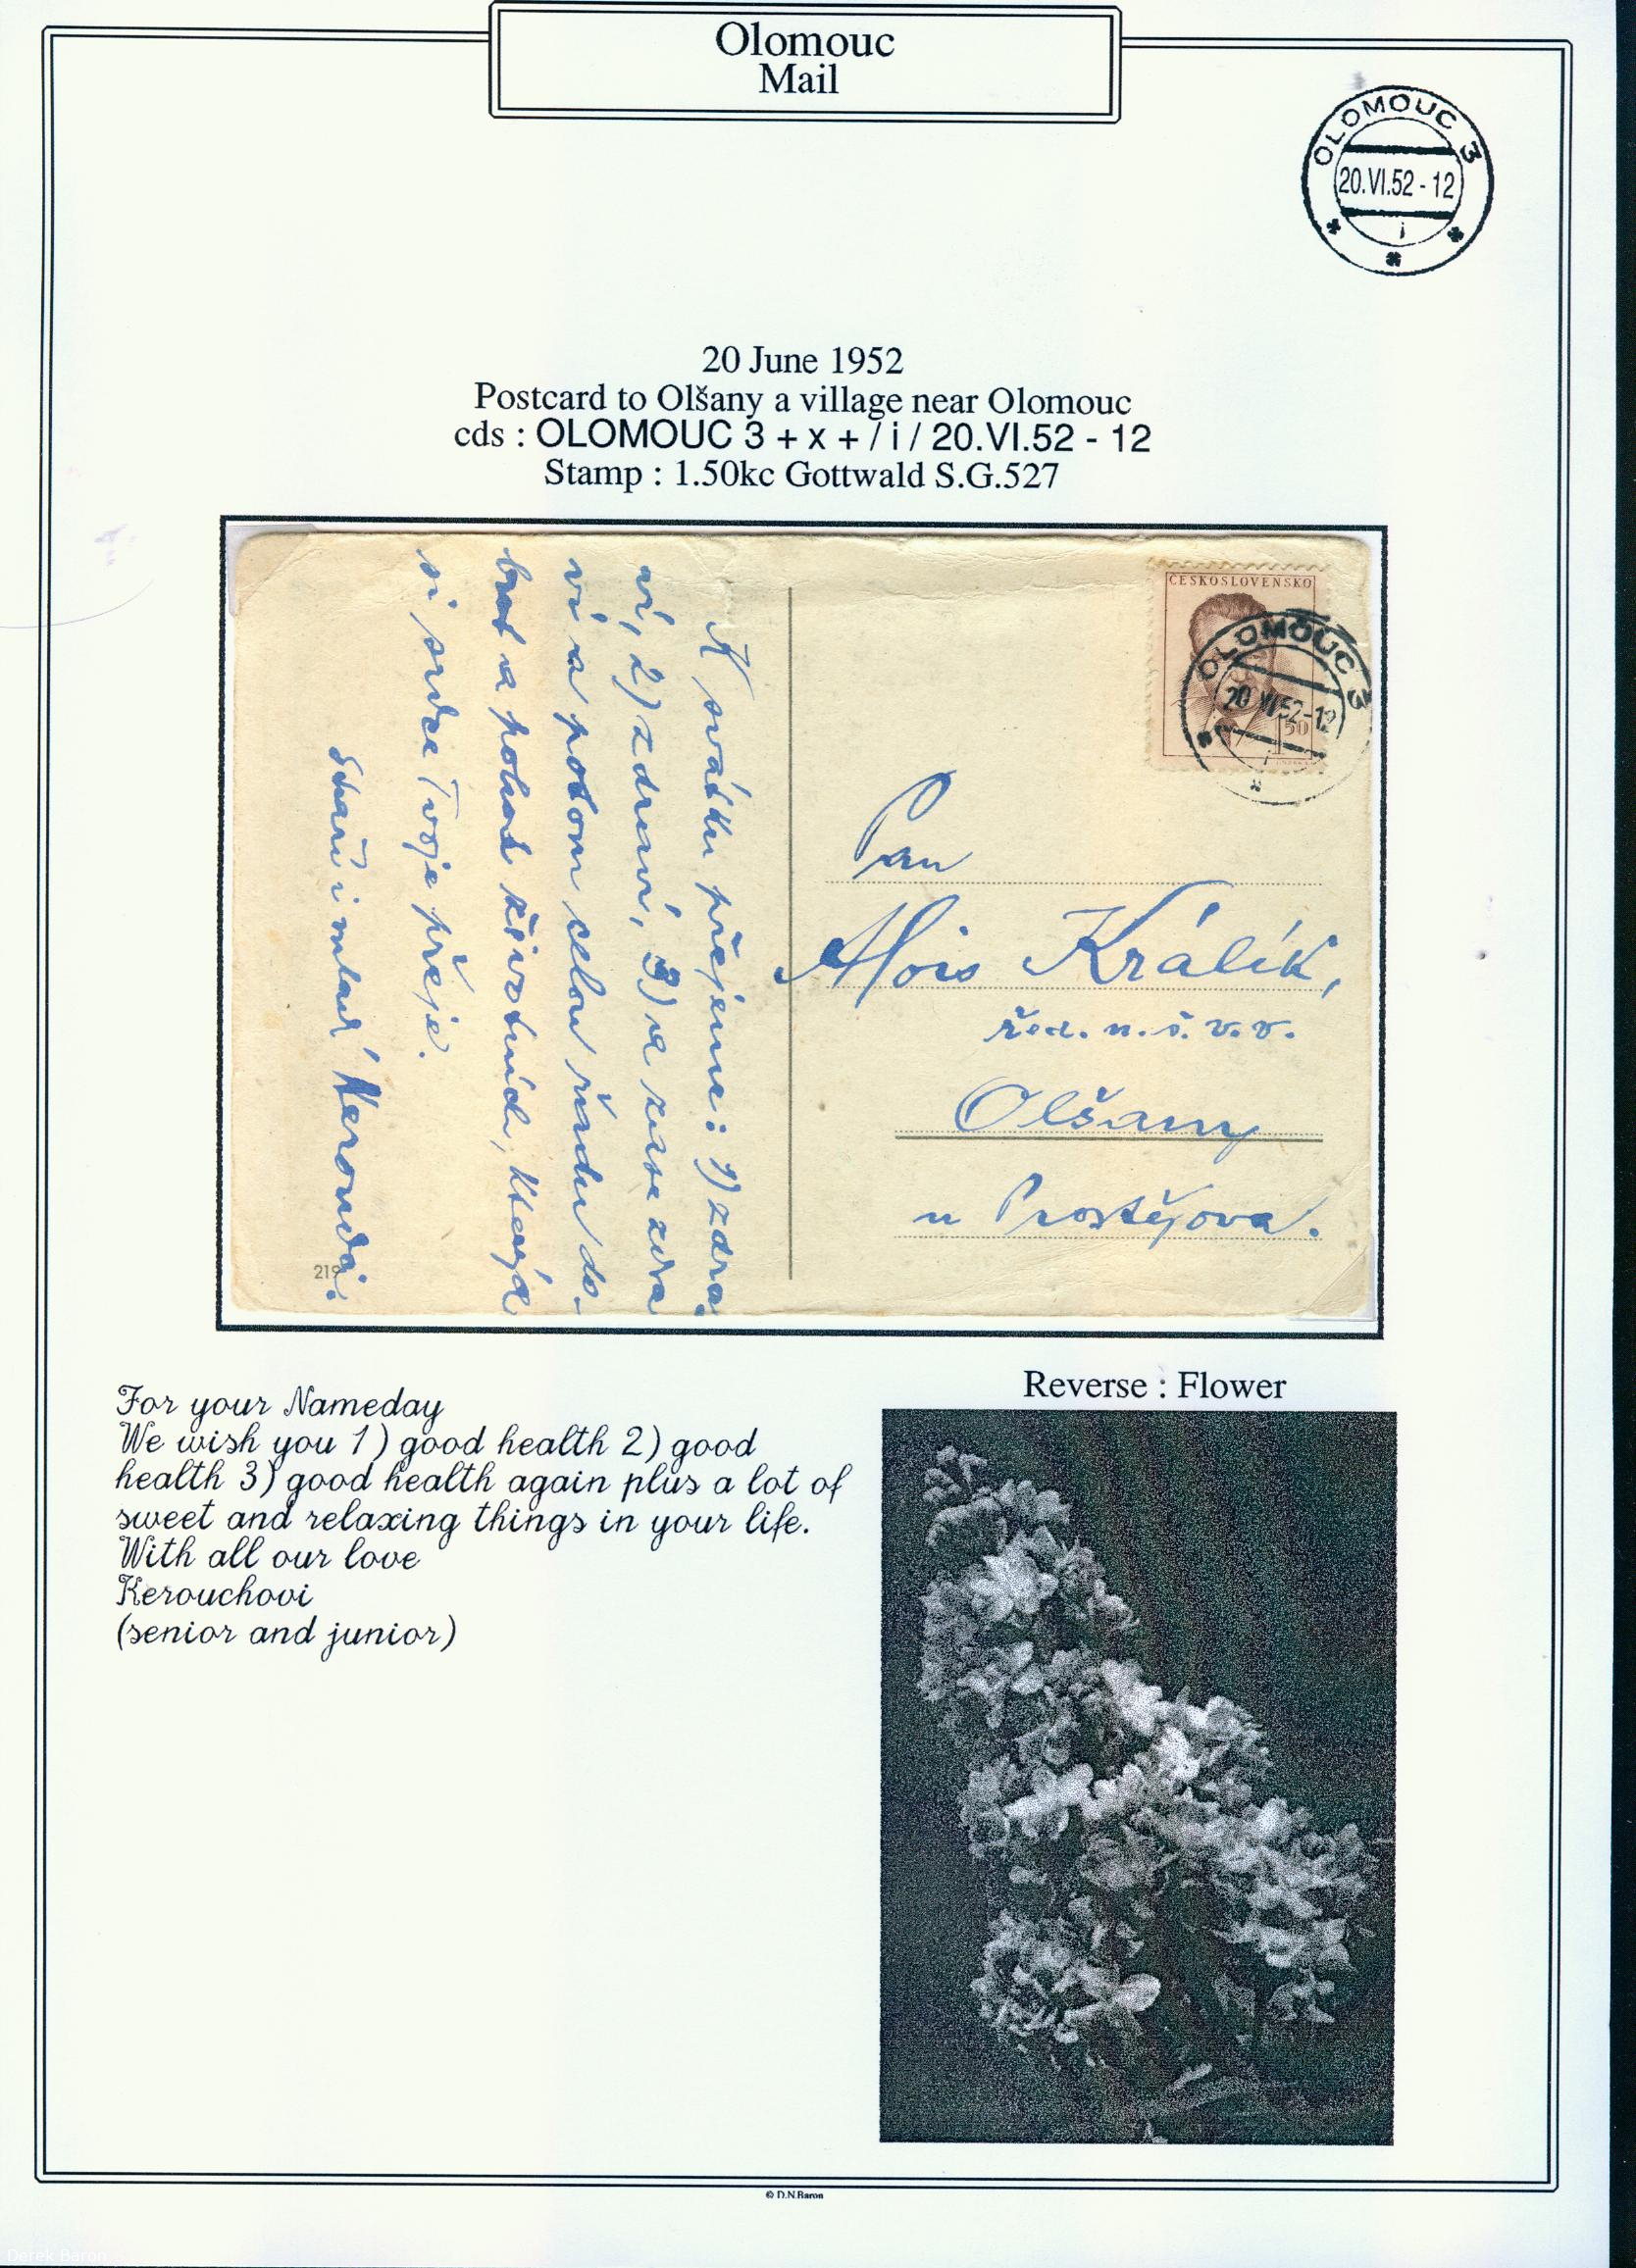 Olomouc
Mail
OLOMOUC 3
20.VI.52 - 12
i
20 June 1952
Postcard to Olšany a village near Olomouc
cds : OLOMOUC 3 + x + / i / 20.VI.52 - 12
Stamp : 1.50kc Gottwald S.G.527
ČESKOSLOVENSKO
OLOMOUC 3
20 VI 52-12
1 50
Pan
Alois Králík,
řed. n. š. v. v.
Olšany
u Prostějova.
K svátku přejeme: 1) zdra-
ví, 2) zdraví, 3) a zase zdra
ví a potom celou řadu do-
brot a pohod
si srdce Tvoje přeje.
219
Reverse : Flower
For your Nameday
We wish you 1) good health 2) good
health 3) good health again plus a lot of
sweet and relaxing things in your life.
With all our love
Kerouchovi
(senior and junior)
© D.N.Baron
Derek Baron